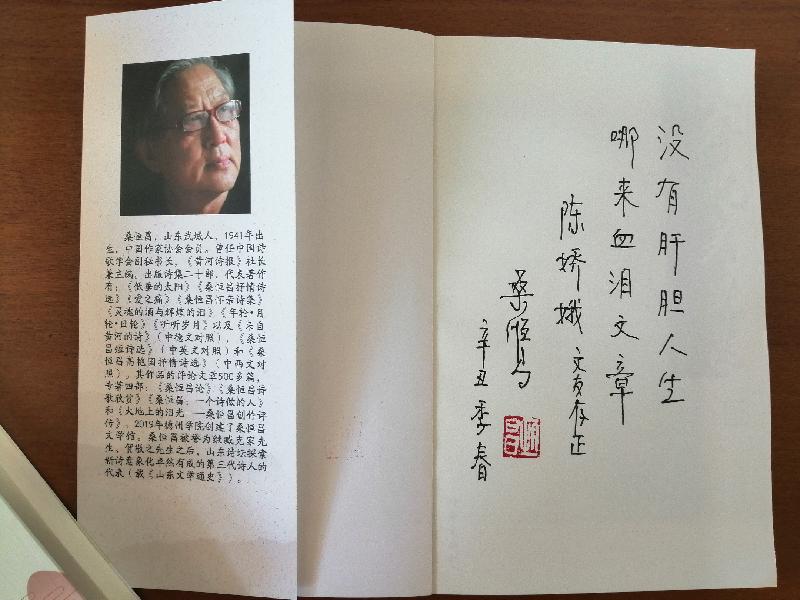 桑恒昌，山东武城人，1941年出
生，中国作家协会会员。曾任中国诗
歌学会副秘书长，《黄河诗报》社长
兼主编，出版诗集二十部，代表著作
有：《低垂的太阳》《桑恒昌抒情诗
选》《爱之痛》《桑恒昌怀亲诗集》
《灵魂的酒与辉煌的泪》《年轮·月
轮·日轮》《听听岁月》以及《来自
黄河的诗》（中德文对照），《桑恒
昌短诗选》（中英文对照）和《桑
恒昌高艳国抒情诗选》（中西文对
照）。其作品的评论文章500多篇，
专著四部：《桑恒昌论》《桑恒昌诗
歌欣赏》《桑恒昌：一个诗做的人》
和《大地上的泪光——桑恒昌创作评
传》。2019年德州学院创建了桑恒昌
文学馆。桑恒昌被誉为继臧克家先
生、贺敬之先生之后，山东诗坛探索
新诗意象化卓然有成的第三代诗人的
代表（载《山东文学通史》）。
没有肝胆人生
哪来血泪文章
陈娇娥文友存正
桑恒昌
辛丑季春
恒昌